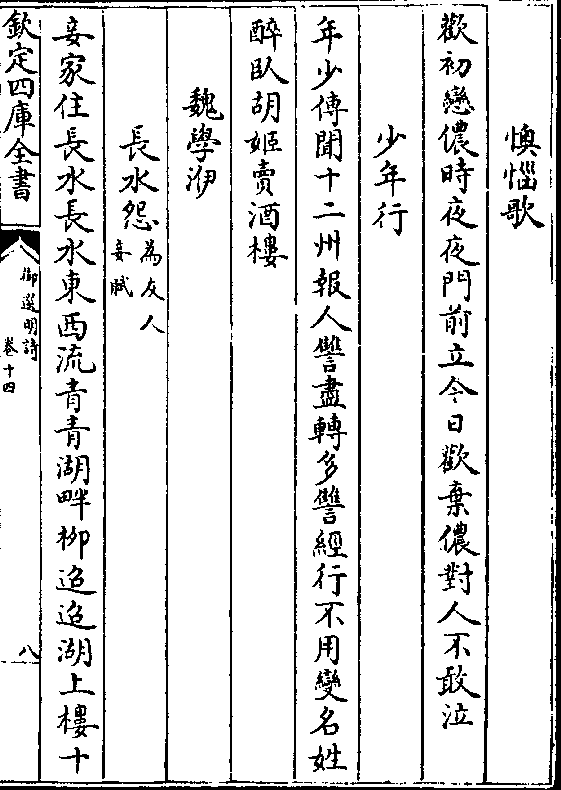 懊惱歌
歡初戀儂時夜夜門前立今日歡棄儂對人不敢泣
少年行
年少傳聞十二州報人讐盡轉多讐經行不用變名姓
醉臥胡姬賣酒樓
魏學洢
長水怨為友人妾賦
妾家住長水長水東西流青青湖畔柳迢迢湖上樓十
欽定四庫全書
御選明詩
卷十四
八